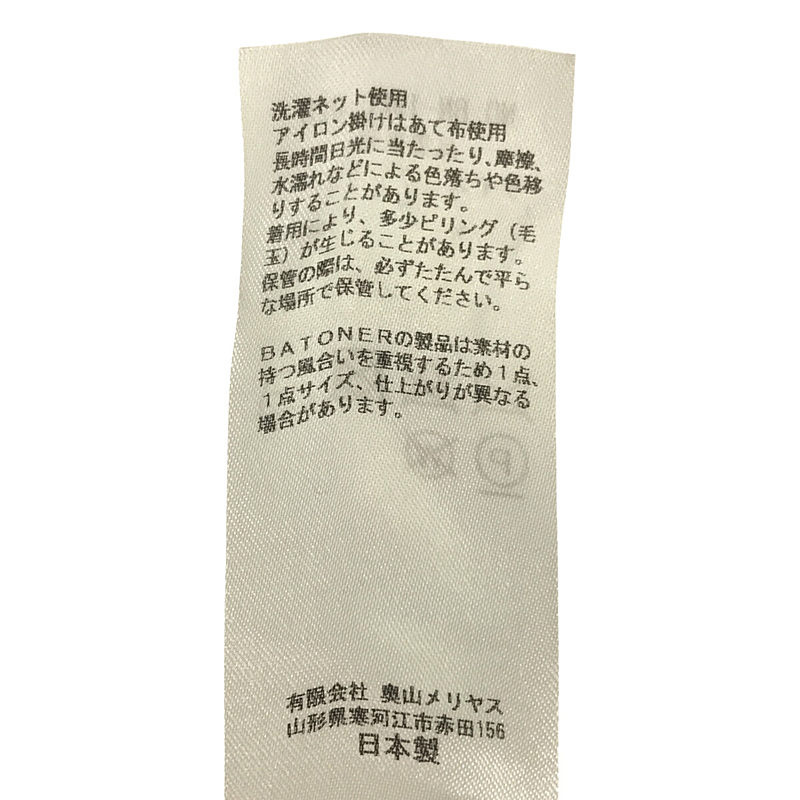 洗濯ネット使用
アイロン掛けはあて布使用
長時間日光に当たったり、摩擦、
水濡れなどによる色落ちや色移
りすることがあります。
着用により、多少ピリング（毛
玉）が生じることがあります。
保管の際は、必ずたたんで平ら
な場所で保管してください。
BATONERの製品は素材の
持つ風合いを重視するため1点、
1点サイズ、仕上がりが異なる
場合があります。
有限会社 奥山メリヤス
山形県寒河江市赤田156
日本製